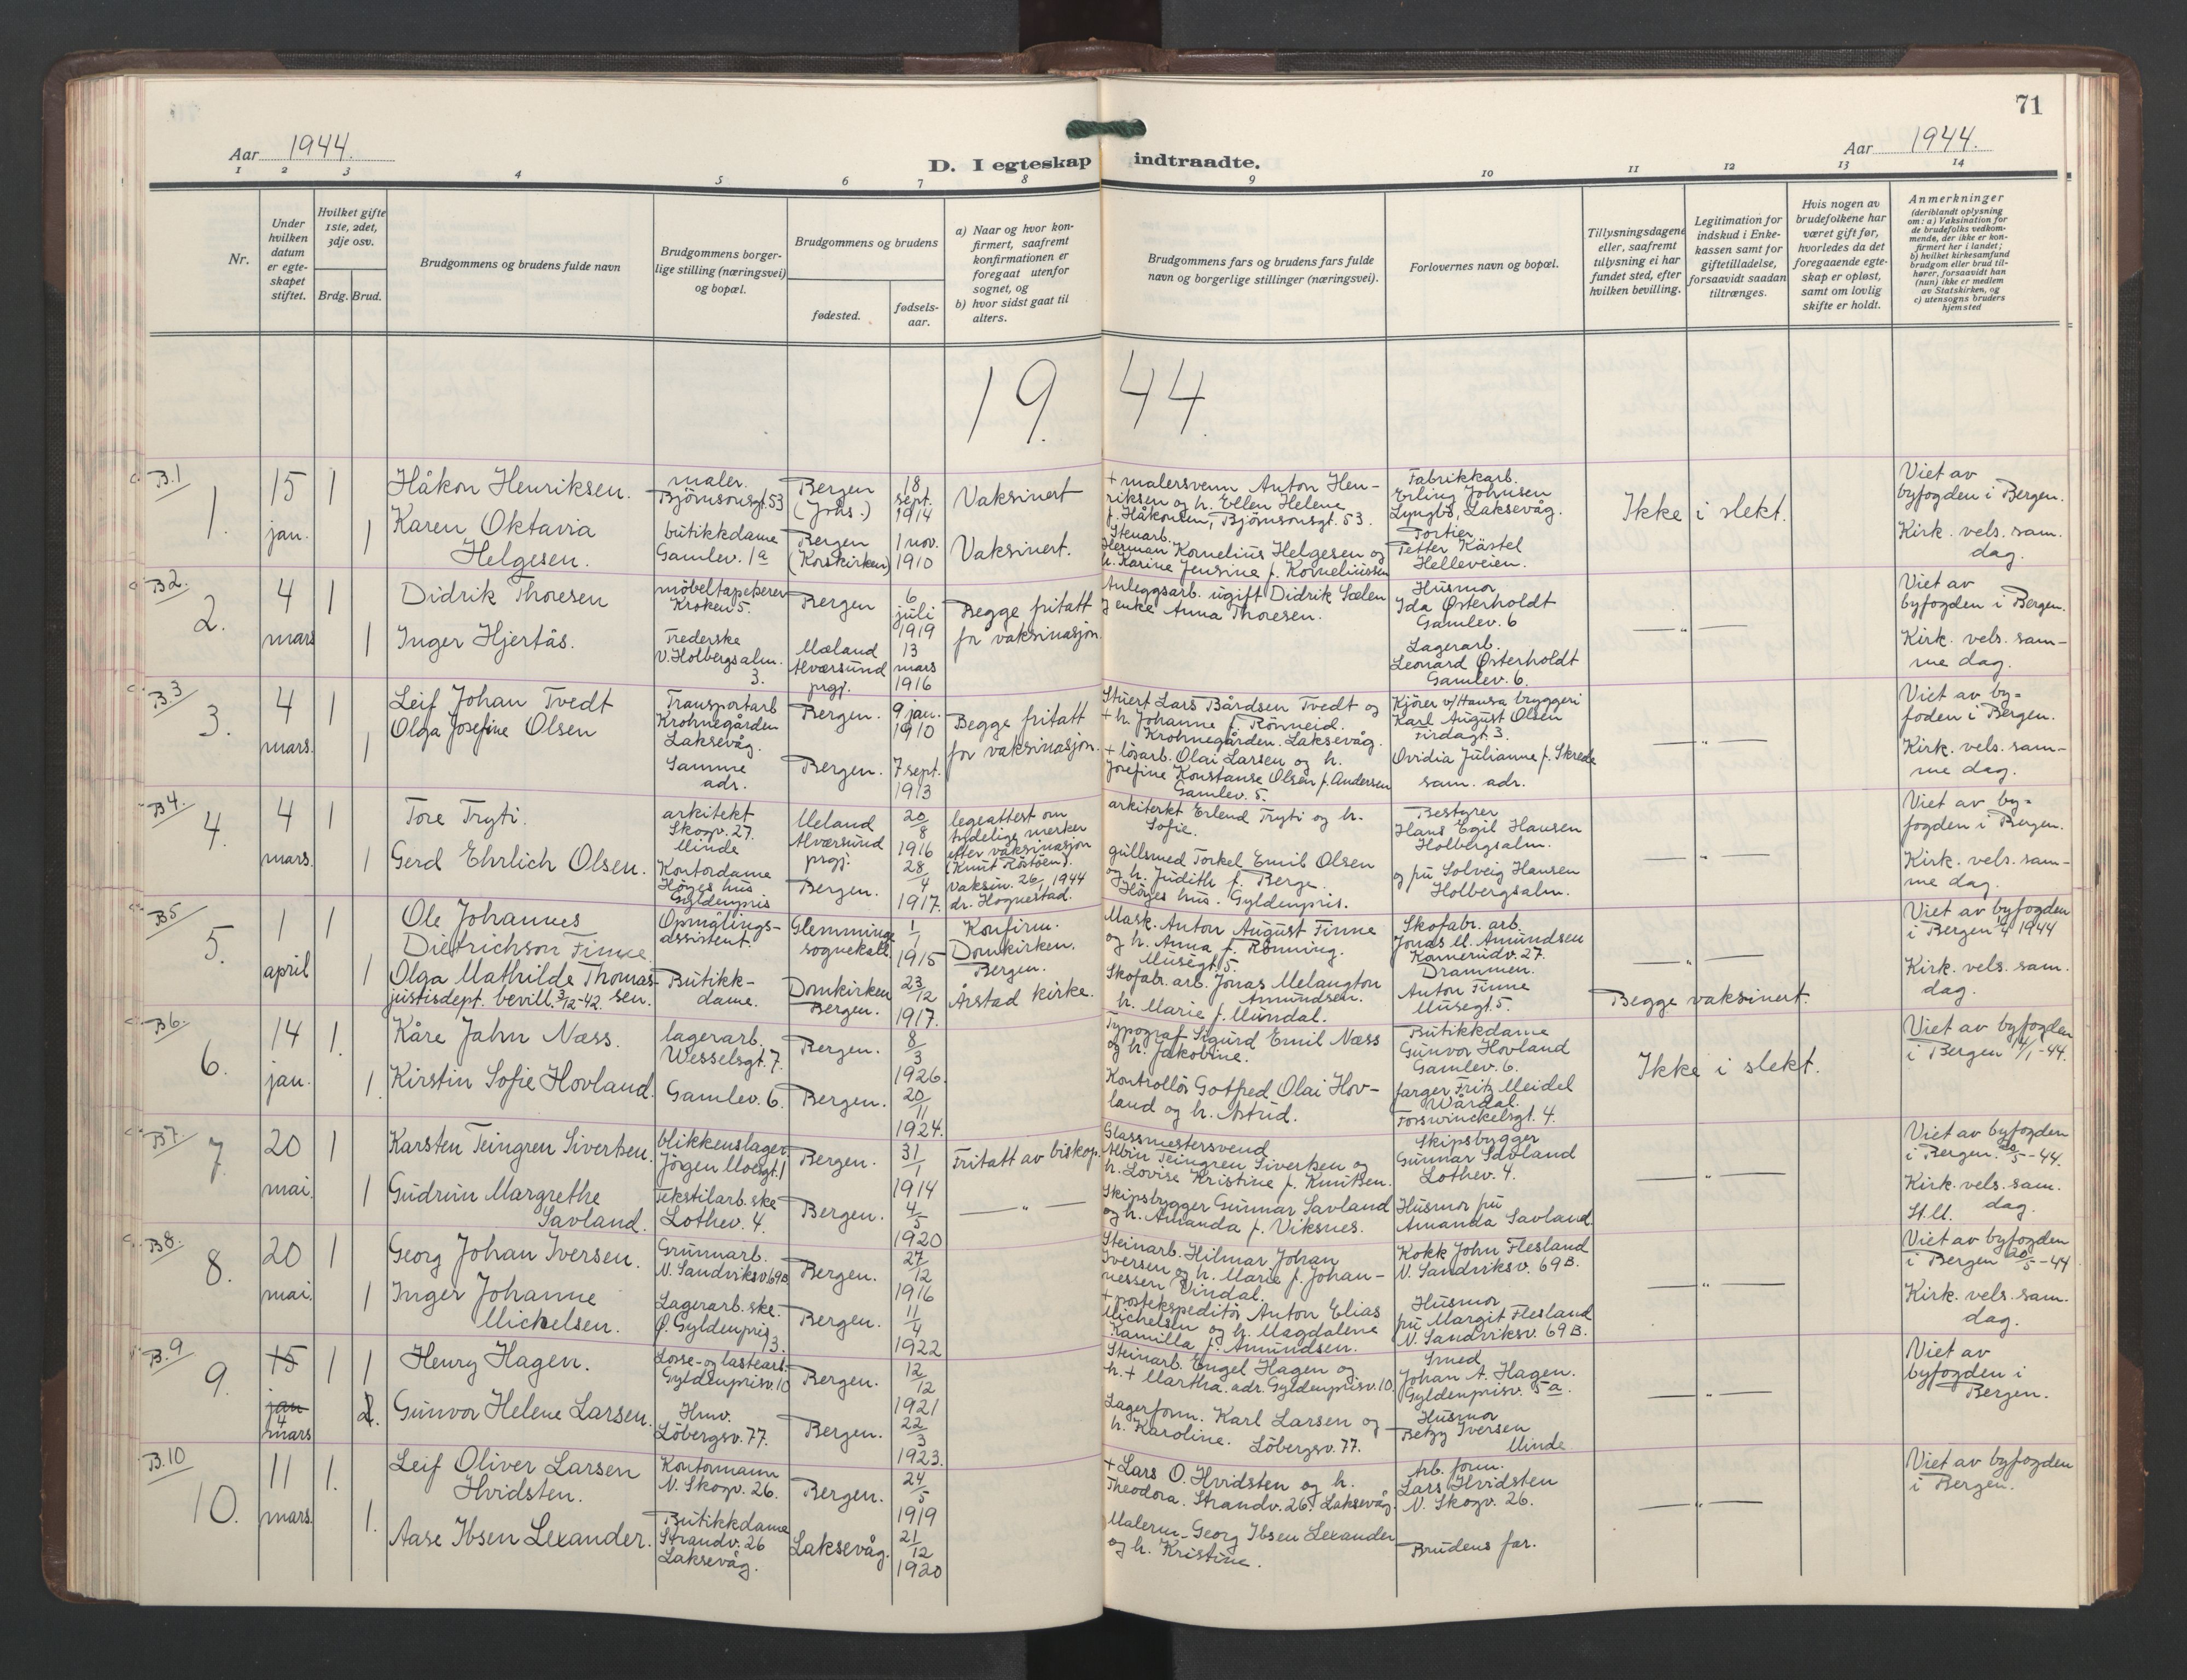 71
Aar 1944.
Aar 1944.
D. I egteskap indtraadte.
1 2 3 4 5 6 7 8 9 10 11 12 13 14
Nr.
Under hvilken datum er egteskapet stiftet.
Hvilket gifte 1ste, 2det, 3dje osv.
Brdg. Brud.
Brudgommens og brudens fulde navn
Brudgommens borgerlige stilling (næringsvei) og bopæl.
Brudgommens og brudens
fødested.
fødsels-aar.
a) Naar og hvor konfirmert, saafremt konfirmationen er foregaat utenfor sognet, og
b) hvor sidst gaat til alters.
Brudgommens fars og brudens fars fulde navn og borgerlige stillinger (næringsvei).
Forlovernes navn og bopæl.
Tillysningsdagene eller, saafremt tillysning ei har fundet sted, efter hvilken bevilling.
Legitimation for indskud i Enkekassen samt for giftetilladelse, forsaavidt saadan tiltrænges.
Hvis nogen av brudefolkene har været gift før, hvorledes da det foregaaende egteskap er opløst, samt om lovlig skifte er holdt.
Anmerkninger
(deriblandt oplysning om: a) Vaksination for de brudefolks vedkommende, der ikke er konfirmert her i landet; b) hvilket kirkesamfund brudgom eller brud tilhører, forsaavidt han (hun) ikke er medlem av Statskirken, og c) utensogns bruders hjemsted
19 44.
B.1
1.
15 jan.
1
1
Håkon Henriksen.
Karen Oktavia
Helgesen.
maler.
Bjørnsonsgt. 53
butikkdame
Gamlev. 1a
Bergen
(Johs.)
Bergen
(Korskirken)
18 sept. 1914
1 nov. 1910
Vaksinert
Vaksinert.
+ malersvenn Anton Hen-
riksen og h. Ellen Helene
f. Håkonsen, Bjørnsonsgt. 53.
Stenarb.
Herman Kornelius Helgesen og
h. Karine Jensine f. Korneliussen
Fabrikkarb.
Erling Johnsen
Lyngbö, Laksevåg.
Portier
Petter Kästel
Helleveien.
Ikke i slekt.
Viet av
byfogden i Bergen.
Kirk. vels. sam.
dag.
B2.
2.
4 mars
1
1
Didrik Thoresen
Inger Hjertås.
möbeltapetserer
Kroken 5.
Frederske
V. Holbergsalm.
3.
Bergen
Mæland
Alversund
prgj.
6 juli 1919
13 mars 1916
Begge fritatt
for vaksinasjon.
Anleggsarb. ugift Didrik Sælen
og enke Anna Thoresen.
Husmor
Ida Østerholdt
Gamlev. 6
Lagerarb.
Leonard Østerholdt
Gamlev. 6.
— " —
Viet av
byfogden i Bergen.
Kirk. vels. sam-
me dag.
B.3
3.
4 mars.
1
1
Leif Johan Tvedt
Olga Josefine Olsen
Transportarb
Krohnegården
Laksevåg.
Samme
adr.
Bergen.
Bergen.
9 jan. 1910
7 sept. 1913
Begge fritatt
for vaksinasjon.
Stuert Lars Bårdsen Tvedt og
+ h. Johanne f. Rönneid.
Krohnegården. Laksevåg.
+ lösarb. Olai Larsen og h.
Josefine Konstanse Olsen f. Andersen
Gamlev. 5.
Kjörer v/ Hansa bryggeri
Karl August Olsen
Firdagt. 3.
Ovidia Julianne f. Skrede
sam. adr.
— " —
Viet av by=
foden i Bergen.
Kirk. vels. sam-
me dag.
B4.
4.
4 mars.
1
1
Tore Tryti.
Gerd Ehrlich Olsen.
arkitekt
Skogv. 27.
Minde
Kontordame
Höges hus
Gyldenpris
Meland
Alversund
prgj.
Bergen.
20/8 1916
28/4 1917.
legeattest om
tydelige merker
efter vaksinasjon
(Knut Röstöen).
Vaksin. 26/1 1944
dr. Hognestad.
arkitekt Erlend Tryti og h.
Sofie.
gullsmed Torkel Emil Olsen
og h. Judith f. Berge.
Höges hus. Gyldenpris.
Bestyrer
Hans Egil Hansen
Holbergsalm.
og fru Solveig Hansen
Holbergsalm.
— " —
Viet av by=
fogden i Bergen.
Kirk. vels. sam-
me dag.
B5
5.
1 april
1
1
Ole Johannes
Dietrichson Finne
Olga Mathilde Thomas-
justisdept. bevill. 3/12-42. sen.
Opmålings-
assistent.
Butikk-
dame.
Glemminge
sognekall
Domkirken
Bergen.
1/1 1915
23/12 1917.
Konfirm.
Domkirken.
Bergen.
Årstad kirke.
Mask. Anton August Finne
og h. Anna f. Rönning.
Musegt. 5.
Skofabr. arb. Jonas Melangton
Amundsen.
h. Marie f. Mundal.
Skofabr. arb.
Jonas M. Amundsen
Kamerudv. 27.
Drammen.
Anton Finne
Musegt. 5.
— " —
Begge vaksinert.
Viet av byfogden
i Bergen 1/4 1944
Kirk. vels. sam.
dag.
B6.
6.
14 jan.
1.
1.
Kåre Jahn Næss.
Kirstin Sofie Hovland.
lagerarb.
Wesselsgt. 7.
Gamlev. 6.
Bergen.
Bergen.
8/3 1926.
20/11 1924.
Typograf Sigurd Emil Næss
og h. Jakobine.
Kontrollör Gotfred Olai Hov-
land og h. Astrid.
Butikkdame
Gunvor Hovland
Gamlev. 6.
farger Fritz Meidel
Wårdal.
Forswinckelsgt. 4.
Ikke i slekt.
Viet av byfogden
i Bergen 14/1-44.
B7.
7.
20 mai.
1
1
Karsten Teingren Sivertsen.
Gudrun Margrethe
Savland.
blikkenslager
Jörgen Moesgt. 1
Tekstilarb. ske
Lothev. 4.
Bergen.
Bergen.
31/1 1914
4/5 1920
Fritatt av biskop.
— " —
Glassmestersvend
Albin Teingren Sivertsen og
h. Lovise Kristine f. Knutsen.
Skipsbygger Gunnar Savland
og h. Amanda f. Viksnes.
Skipsbygger
Gunnar Savland
Lothev. 4.
Husmor fru
Amanda Savland.
— " —
Viet av byfogden
i Bergen. 20/5-44.
Kirk. vels. sam.
St. M. dag.
B8.
8.
20 mai.
1
1
Georg Johan Iversen.
Inger Johanne
Michelsen.
Grunnarb.
N. Sandviksv 69B
Lagerarb. ske.
Ø. Gyldenpris
13.
Bergen.
Bergen.
27/12 1916
11/4 1922
Steinarb. Hilmar Johan
Iversen og h. Marie f. Johan-
nessen Vindal.
+ postekspeditör Anton Elias
Michelsen og h. Magdalene
Kamilla f. Amundsen.
Kokk John Flesland
N. Sandviksv. 69B.
Husmor
fru Margit Flesland
N. Sandviksv. 69B.
— " —
Viet av byfogden
i Bergen 20/5-44
Kirk. vels. sam.
dag.
B.9
9.
15 jan
4 mars
1
1
2.
Henry Hagen.
Gunvor Helene Larsen.
Losse- og lastearb.
Gyldenprisv. 10
Hmv.
Löbergsv. 77.
Bergen.
Bergen.
12/12 1921
22/3 1923.
Steinarb. Engel Hagen og
h. + Martha. adr. Gyldenprisv. 10.
Lagerform. Karl Larsen og
h. Karoline. Löbergsv. 77.
Smed
Johan A. Hagen.
Gyldenprisv. 5a.
Husmor
Betzy Iversen
Minde
— " —
Viet av
byfogden i
Bergen.
B.10
10.
11 mars.
1.
1.
Leif Oliver Larsen
Hvidsten.
Aase Ibsen Lexander.
Kontormann
N. Skogv. 26.
Butikkdame
Strandv. 26
Laksevåg.
Bergen.
Laksevåg.
24/5 1919
21/12 1920
+ Lars O. Hvidsten og h.
Theodora. Strandv. 26. Laksevåg.
Malerm. Georg Ibsen Lexander
og h. Kristine.
Arb. form.
Lars Hvidsten
N. Skogv. 26.
Brudens far.
— " —
Viet av byfogden
i Bergen.